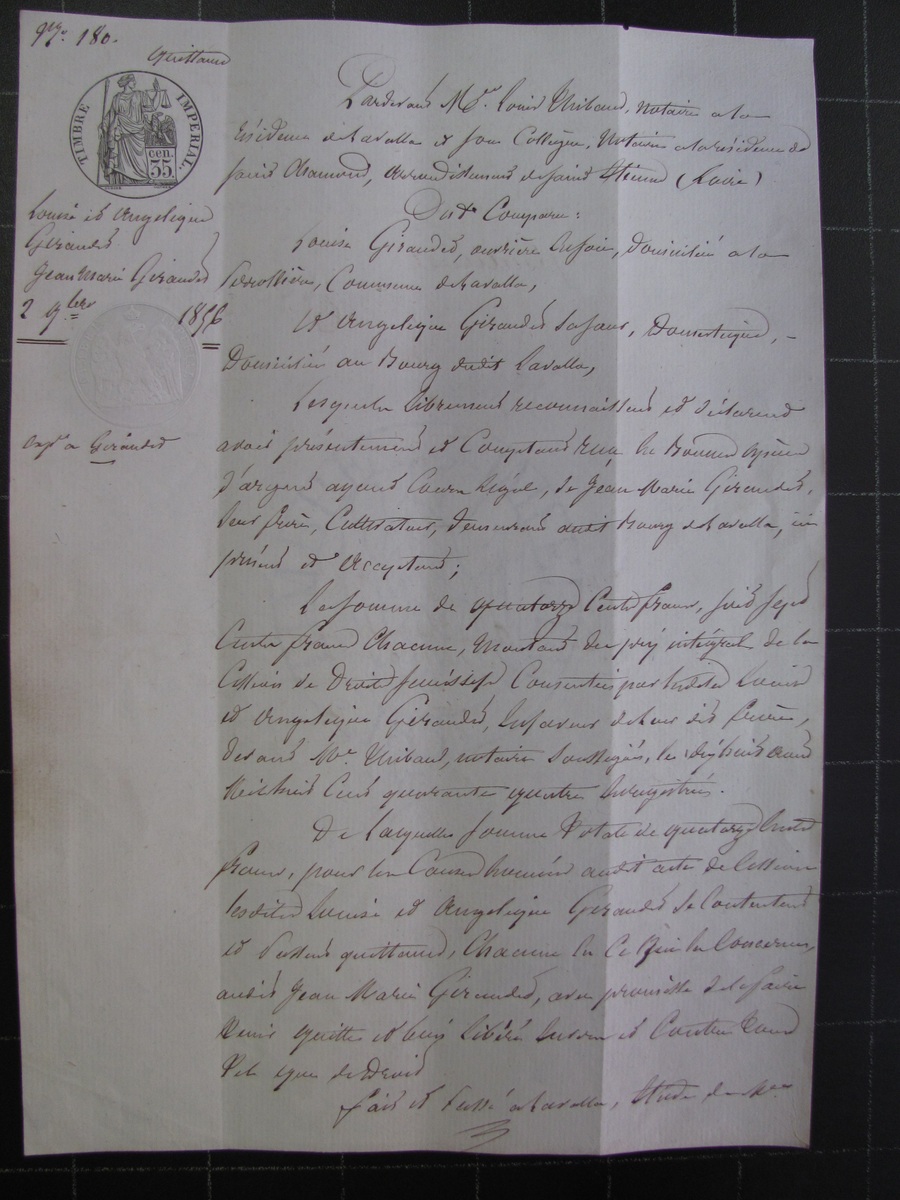 180.
quittance
TIMBRE IMPERIAL.
cen. 35.
Louise et Angelique
Giraudet
Jean Marie Giraudet
2 9bre 1856
Exp. a Giraudet
Pardevant Me. Louis Thibaud, notaire a la
résidence de Lavalla et son Collègue, Notaire a la résidence de
saint Chamond, arrondissement de saint Etienne (Loire)
Est Comparu:
Louise Giraudet, ouvrière en soie, domiciliée a la
Commune de Lavalla,
Et Angelique Giraudet sa sœur, Domestique,
Domiciliée au Bourg dudit Lavalla,
Lesquelles librement reconnaissent et déclarent
avoir présentement et Comptant reçu en bonnes espèces
d'argent ayant Cours légal, de Jean Marie Giraudet,
leur frère, Cultivateur, demeurant audit Bourg de Lavalla, ici
présent et acceptant;
La somme de quatorze Cents francs, soit sept
Cents francs Chacune, montant du prix intégral de la
Cession de Droits successifs Consentie par lesdites Louise
et Angelique Giraudet, en faveur de leur dit frère,
devant Me. Thibaud, notaire soussigné, le dix huit août
mil huit Cent quarante quatre enregistré.
De laquelle somme totale de quatorze Cents
francs, pour les Causes énoncées audit acte de Cession
lesdites Louise et Angelique Giraudet se Contentent
et passent quittance, Chacune en Ce qui la Concerne,
audit Jean Marie Giraudet, avec promesse de le faire
tenir quitte et bien libéré envers et Contre tous
de Droit
fait et passé a Lavalla, Etude de Me.